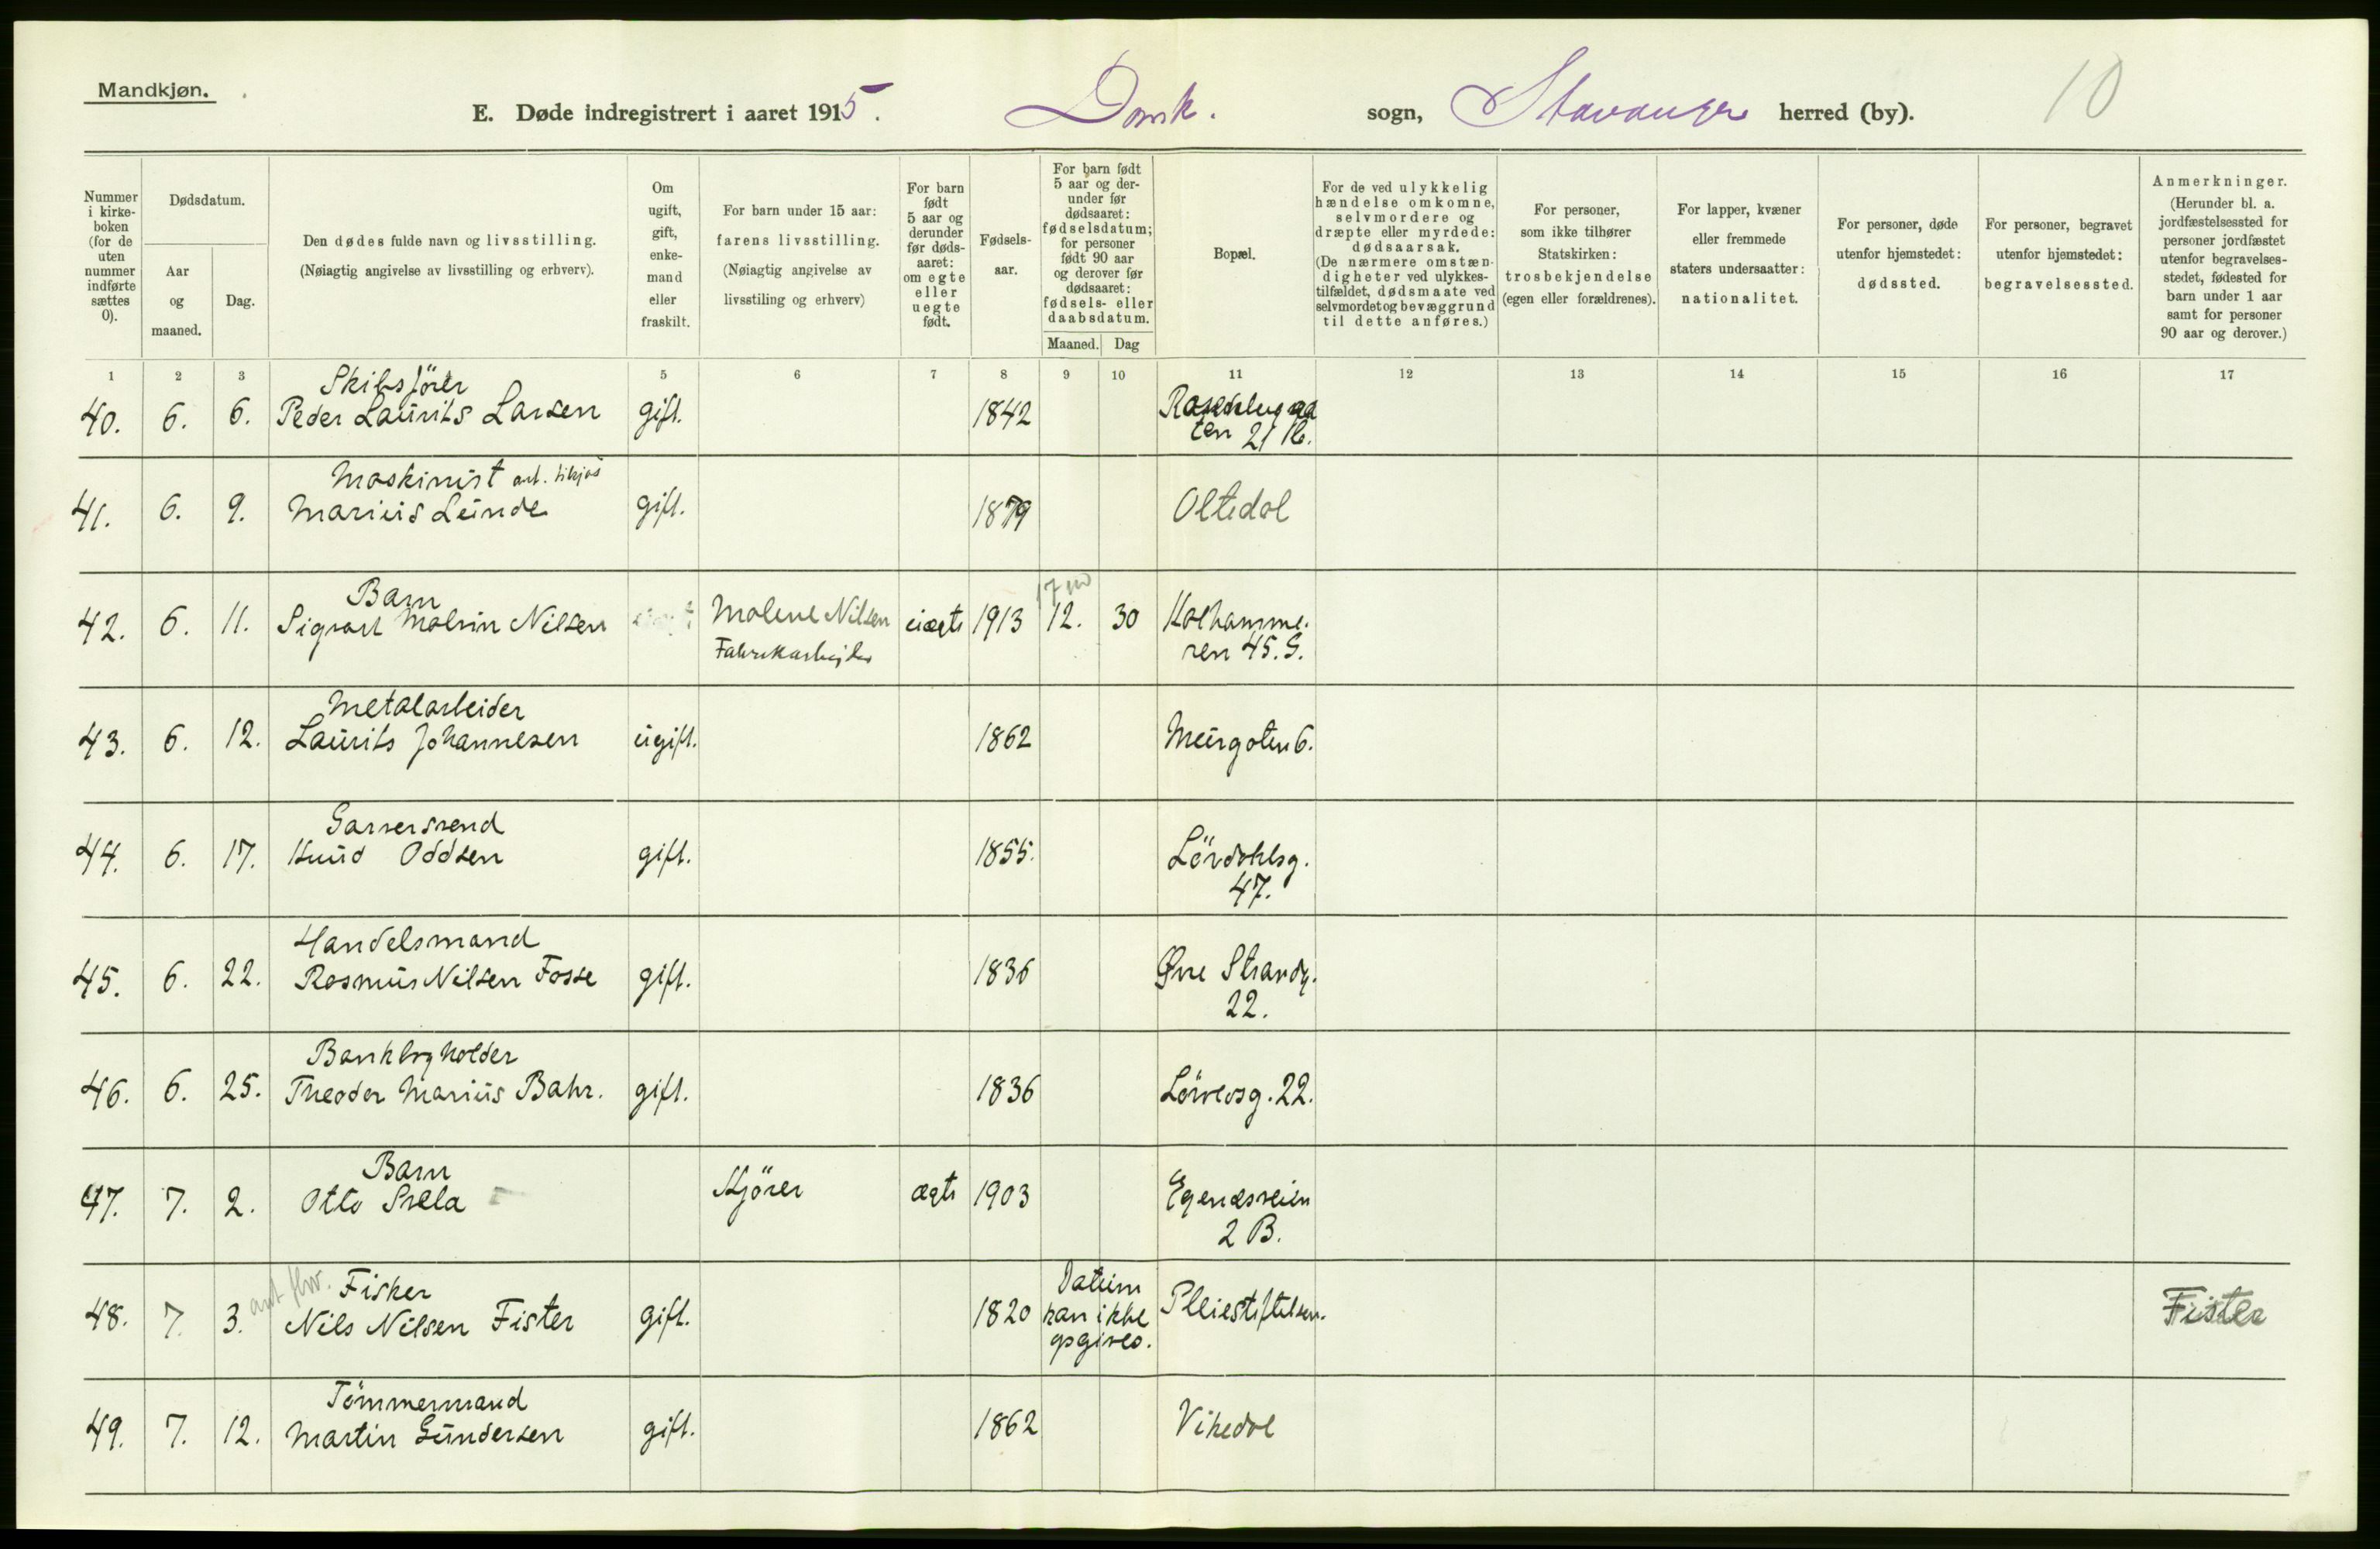 Mandkjøn.
E. Døde indregistrert i aaret 1915. Domk. sogn, Stavanger herred (by). 10
Nummer i kirke-boken (for de uten nummer indførte sættes 0).
Dødsdatum.
Aar og maaned.
Dag.
Den dødes fulde navn og livsstilling.
(Nøiagtig angivelse av livsstilling og erhverv).
Om ugift, gift, enke-mand eller fraskilt.
For barn under 15 aar:
farens livsstilling.
(Nøiagtig angivelse av
livsstiling og erhverv)
For barn født 5 aar og derunder før døds-aaret: om egte eller uegte født.
Fødsels-aar.
For barn født 5 aar og der-under før dødsaaret: fødselsdatum; for personer født 90 aar og derover før dødsaaret: fødsels- eller daabsdatum.
Maaned. Dag
Bopæl.
For de ved ulykkelig hændelse omkomne, selvmordere og dræpte eller myrdede: dødsaarsak. (De nærmere omstæn-digheter ved ulykkes-tilfældet, dødsmaate ved selvmordet og bevæggrund til dette anføres.)
For personer,
som ikke tilhører
Statskirken:
trosbekjendelse
(egen eller forældrenes).
For lapper, kvæner
eller fremmede
staters undersaatter:
nationalitet.
For personer, døde
utenfor hjemstedet:
dødssted.
For personer, begravet
utenfor hjemstedet:
begravelsessted.
Anmerkninger.
(Herunder bl. a.
jordfæstelsessted for
personer jordfæstet
utenfor begravelses-
stedet, fødested for
barn under 1 aar
samt for personer
90 aar og derover.)
1 2 3 5 6 7 8 9 10 11 12 13 14 15 16 17
Skibsförer
40. 6. 6. Peder Laurits Larsen gift. 1842
ten 21 b.
Maskinist
41. 6. 9. Marius Lunde gift. 1879 Oltedal
Barn 17 m
42. 6. 11. Sigvart Malvin Nilsen Malene Nilsen uægte 1913 12. 30 Kalhamme-
Fabrikarbejder ren 45. G.
Metalarbeider
43. 6. 12. Laurits Johannesen ugift. 1862 Murgaten 6.
Garversvend
44. 6. 17. Knud Oddsen gift. 1855. Lövdahlsg.
47.
Handelsmand
45. 6. 22. Rasmus Nilsen Fosse gift. 1836 Øvre Strandg.
22.
Bankbogholder
46. 6. 25. Theodor Marius Bahr. gift. 1836 Lövvosg. 22.
Barn
47. 7. 2. Otto Svela Kjörer ægte 1903 Egenæsveien
2 B.
Fisker Datum
48. 7. 3. Nils Nilsen Fister gift. 1820 kan ikke Pleiestiftelsen. Fister
opgives.
Tömmermand
49. 7. 12. Martin Gundersen gift. 1862 Vikedal